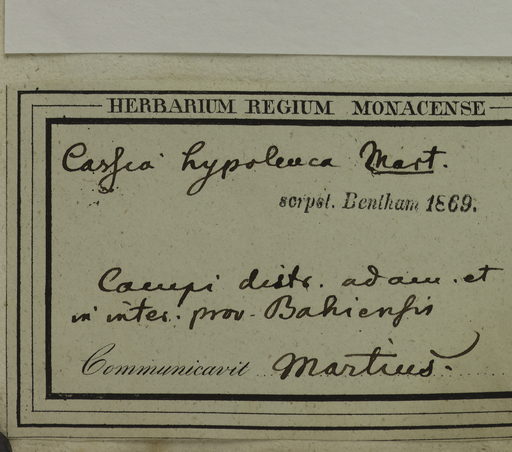 HERBARIUM REGIUM MONACENSE
Cassia hypoleuca Mart.
scrpst. Bentham 1869.
Campi distr. adam. et
in inter. prov. Bahiensis
Communicavit Martius.